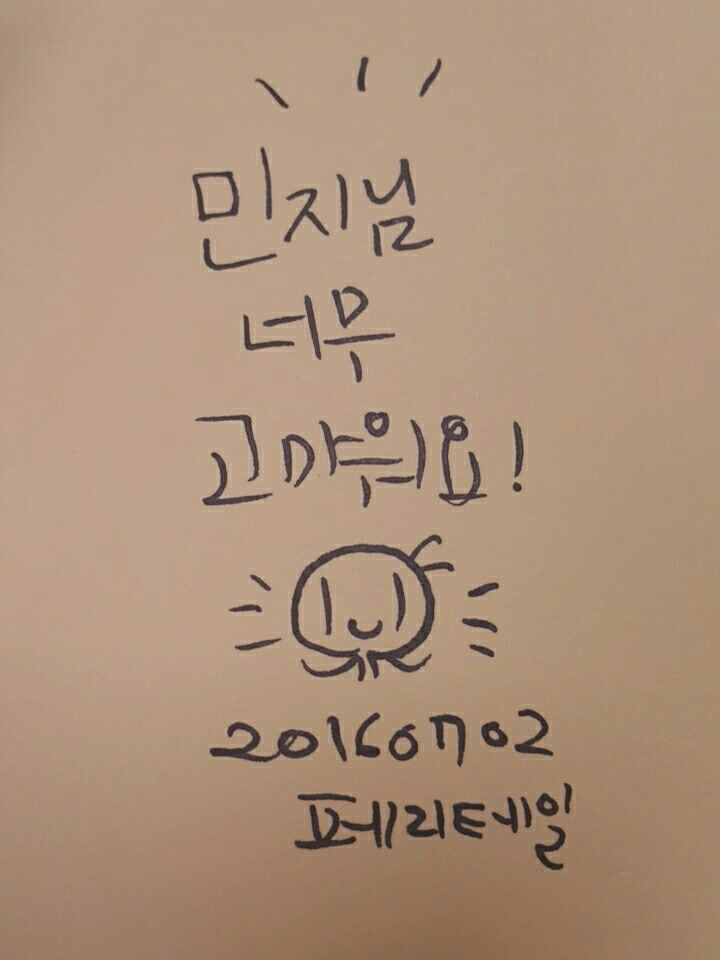 민지님
너무
고마워요!
20160702
페리테일